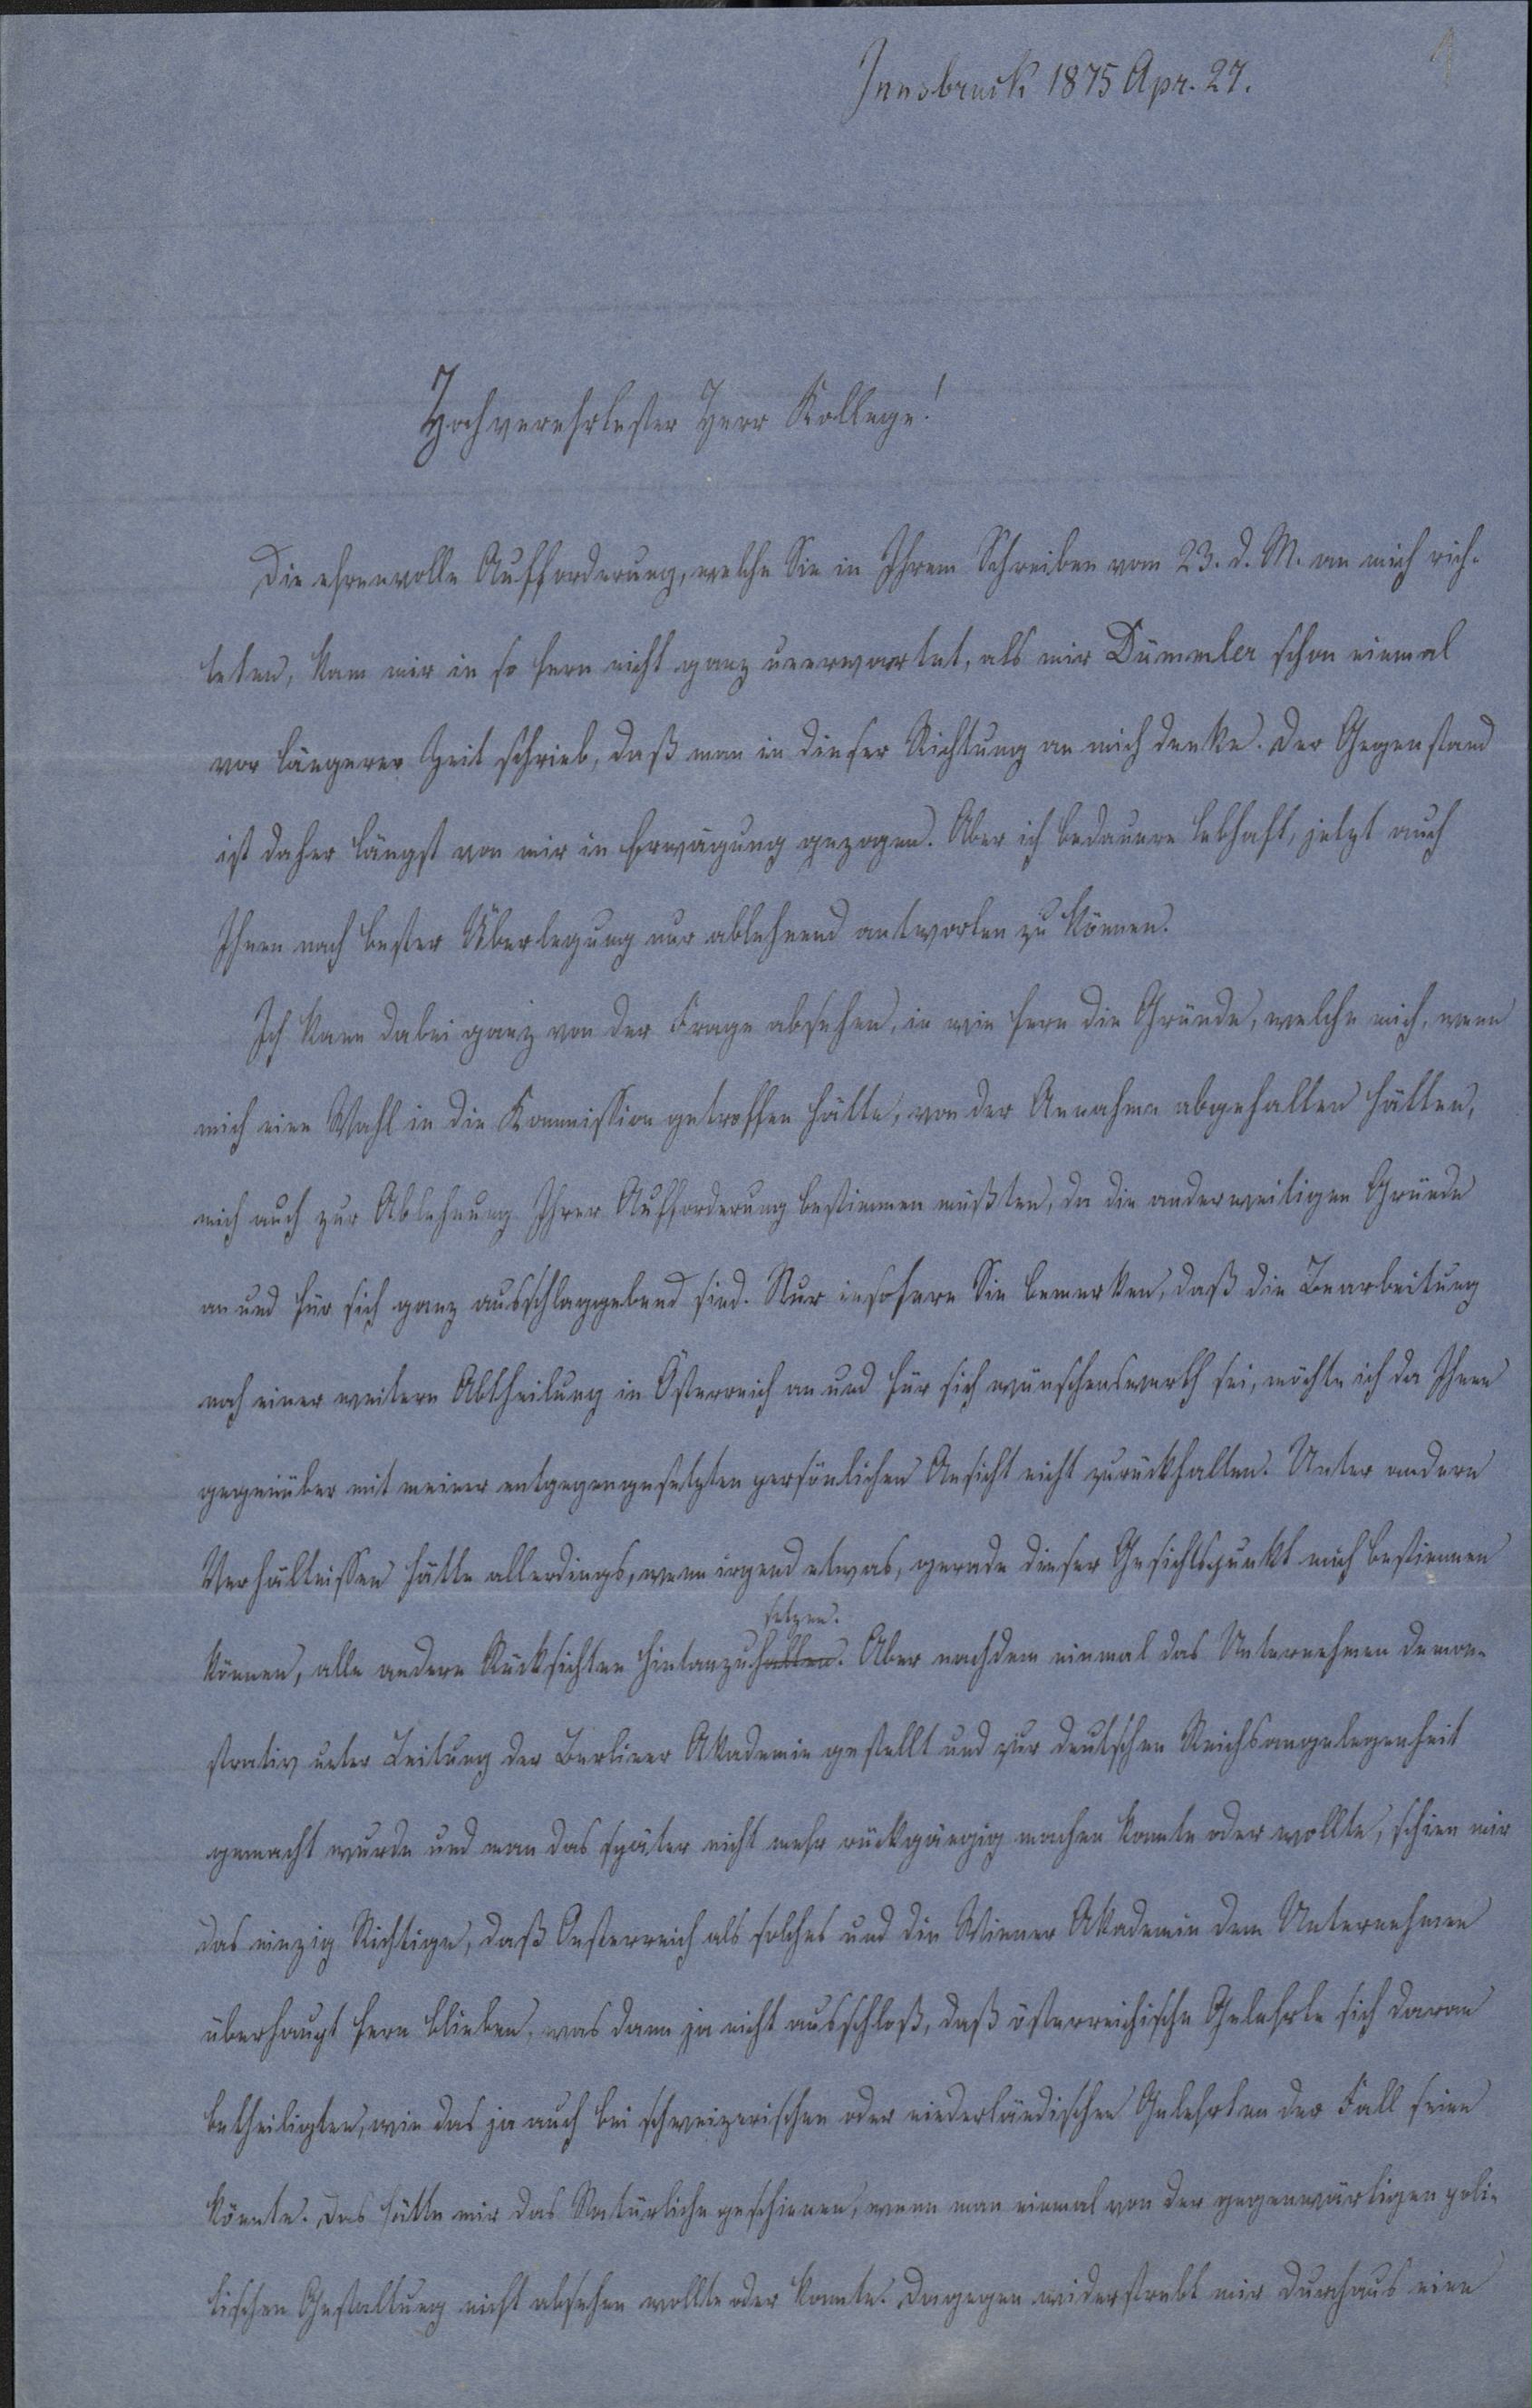 Innsbruck 1875 Apr. 27.
1
Hochverehrtester Herr Kollege!
Die ehrenvolle Aufforderung, welche Sie in Ihrem Schreiben vom 23. d. M. an mich rich-
teten, kam mir in so fern nicht ganz unerwartet, als mir Dümmler schon einmal
vor längerer Zeit schrieb, daß man in dieser Richtung an mich denke. Der Gegenstand
ist daher längst von mir in Erwägung gezogen. Aber ich bedauere lebhaft, jetzt auch
Ihnen nach bester Überlegung nur ablehnend antworten zu können.
Ich kann dabei ganz von der Frage absehen, in wie fern die Gründe, welche mich, wenn
mich eine Wahl in die Kommission getroffen hätte, von der Annahme abgehalten hätten,
mich auch zur Ablehnung Ihrer Aufforderung bestimmen müßten, da die anderweitigen Gründe
an und für sich ganz ausschlaggebend sind. Nur insofern Sie bemerken, daß die Bearbeitung
noch einer weitern Abtheilung in Österreich an und für sich wünschenswerth sei, möchte ich da Ihnen
gegenüber mit meiner entgegengesetzten persönlichen Ansicht nicht zurückhalten. Unter andern
Verhältnissen hätte allerdings, wenn irgend etwas, gerade dieser Gesichtspunkt mich bestimmen
setzen.
können, alle andern Rücksichten hintanzuhalten. Aber nachdem einmal das Unternehmen demon-
strativ unter Leitung der Berliner Akademie gestellt und zur deutschen Reichsangelegenheit
gemacht wurde und man das später nicht mehr rückgängig machen konnte oder wollte, schien mir
das einzig Richtige, daß Oesterreich als solches und die Wiener Akademie dem Unternehmen
überhaupt fern blieben, was dann ja nicht ausschloß, daß österreichische Gelehrte sich daran
betheiligten, wie das ja auch bei schweizerischen oder niederländischen Gelehrten der Fall sein
könnte. Das hätte mir das Natürliche geschienen, wenn man einmal von der gegenwärtigen poli-
tischen Gestaltung nicht absehen wollte oder konnte. Dagegen widerstrebt mir durchaus eine